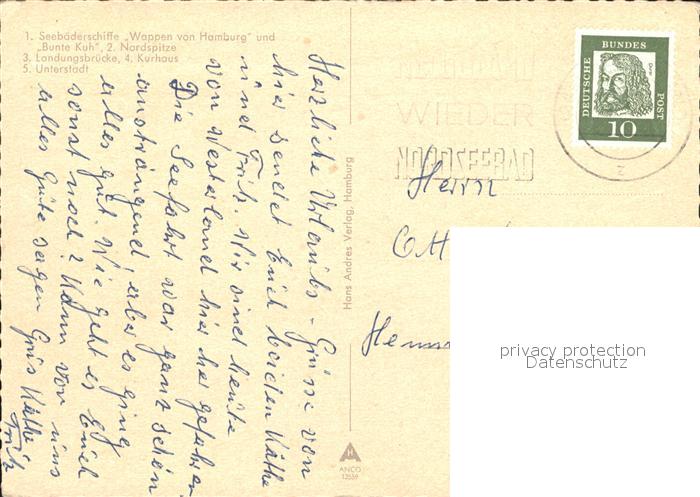 1. Seebäderschiffe „Wappen von Hamburg" und
„Bunte Kuh", 2. Nordspitze
3. Landungsbrücke, 4. Kurhaus
5. Unterstadt
Herzliche Urlaubs-Grüsse von
hier sendet Euch beiden Käthe
und Fritz. Wir sind heute
von Westerland hier her gefahren
Die Seefahrt war ganz schön
anstrángend, aber es ging
alles gut. Wie geht es Euch
sonst noch? Kann von uns
alles Gute sagen Gruss Käthe
Fritz
Hans Andres Verlag, Hamburg
ANCO
12559
DEUTSCHE
BUNDES
POST
Dürer
10
WIEDER
NORDSEEBAD
Herrn
privacy protection
Datenschutz